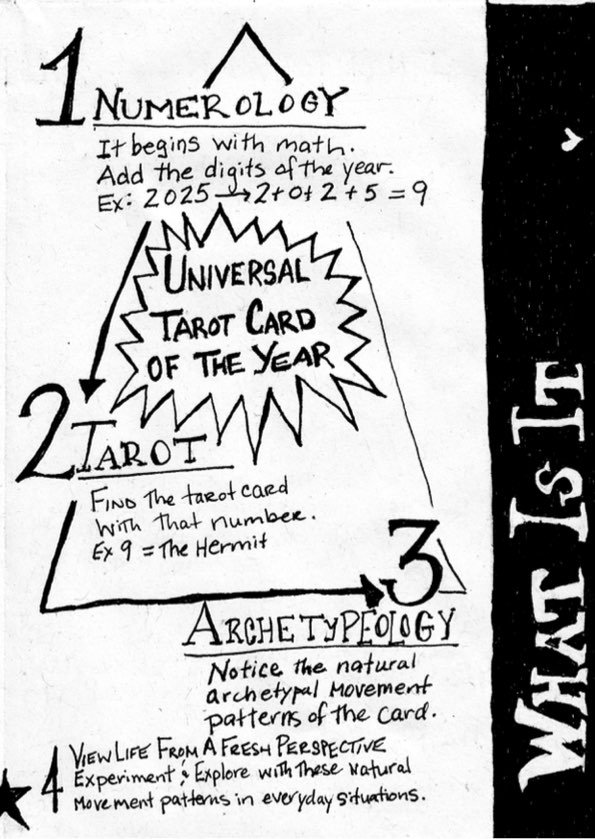 1 NUMEROLOGY
It begins with math.
Add the digits of the year.
Ex: 2025 → 2+0+2+5=9
UNIVERSAL
TAROT CARD
OF THE YEAR
2 TAROT
FIND The tarot card
with that number.
Ex 9 = The Hermit
3
ARCHETYPEOLOGY
Notice the natural
archetypal Movement
patterns of the card.
4 VIEW LIFE FROM A FRESH PERSPECTIVE
Experiment & Explore with These Natural
Movement patterns in everyday situations.
WHAT IS IT